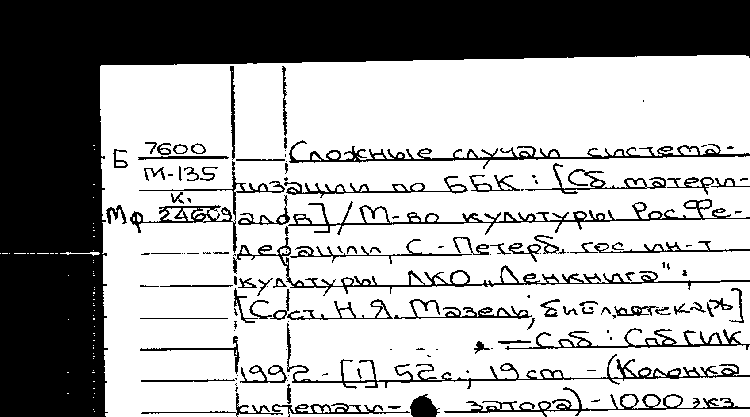 Б 7600
М-135
к.
Мф 24609
Сложные случаи система-
тизации по ББК : [Сб. матери-
алов] / М-во культуры Рос. Фе-
дерации, С.-Петерб. гос. ин-т
культуры, ЛКО „Ленкнига";
[Сост. Н. Я. Мазель, библиотекарь]
. — Спб : СпбГИК,
1992. - [1], 52 с.; 19 cm - (Колонка
системати- затора) - 1000 экз